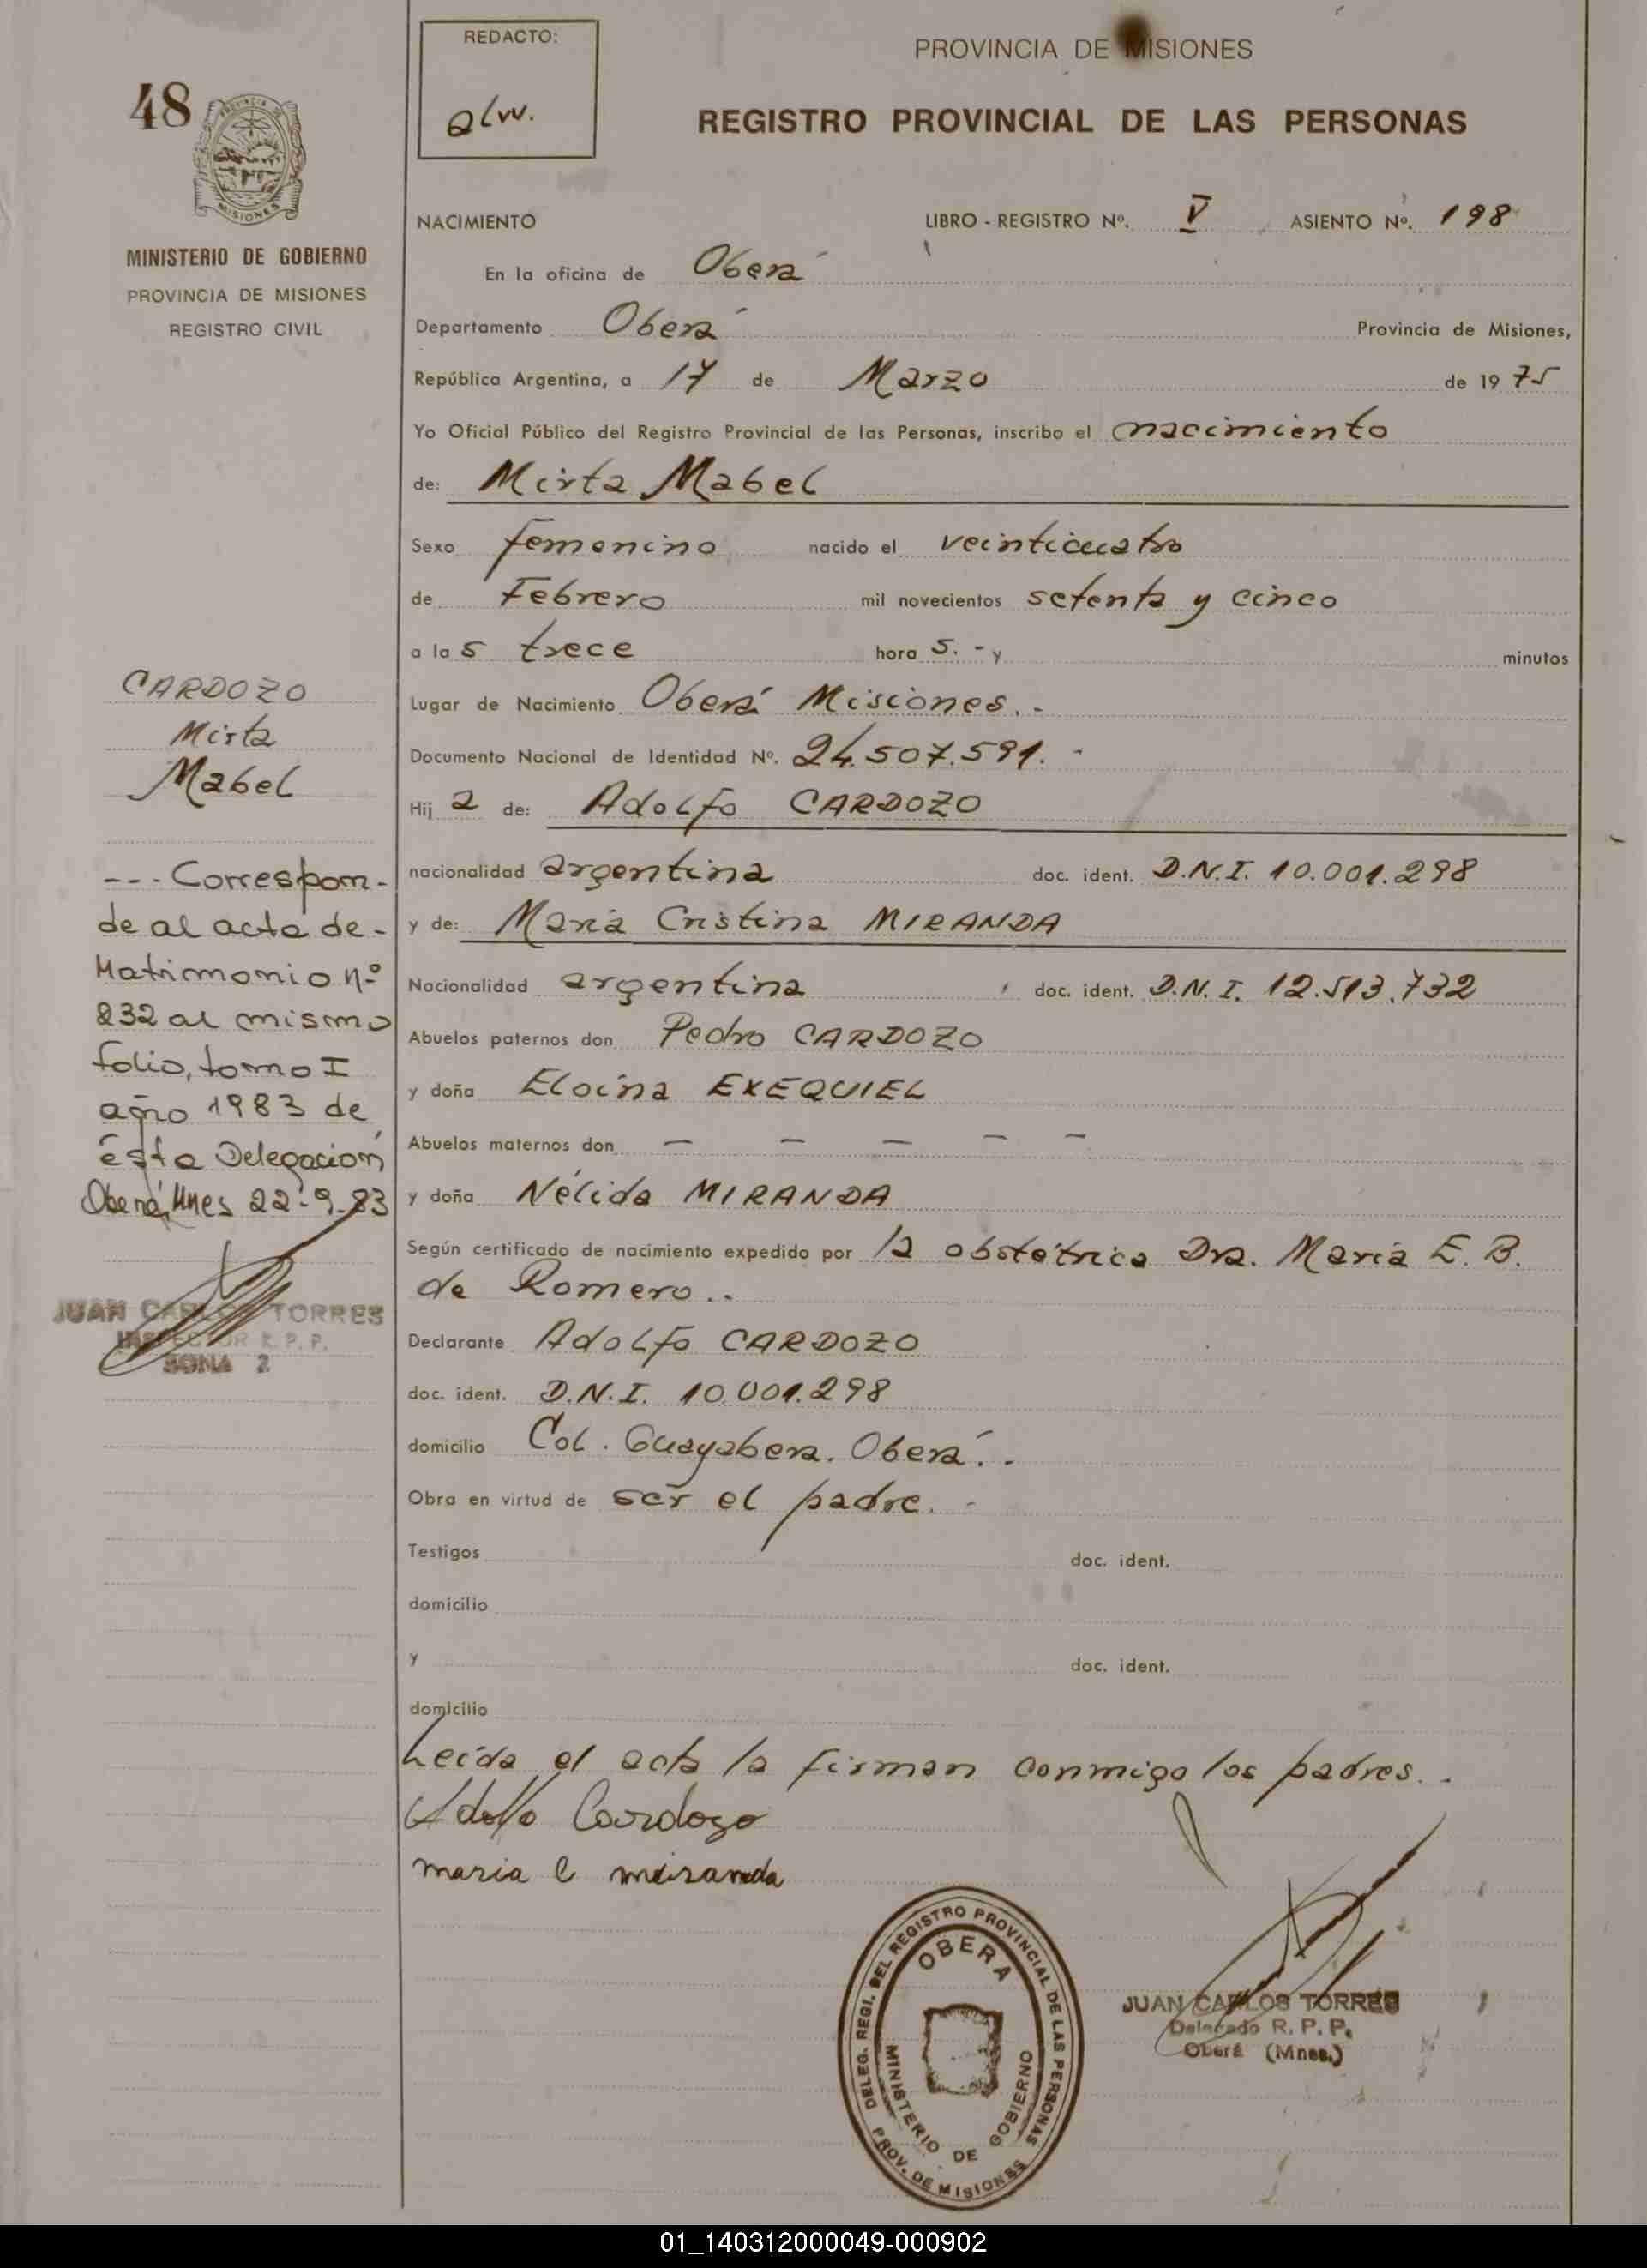 48
PROVINCIA DE MISIONES
MINISTERIO DE GOBIERNO
PROVINCIA DE MISIONES
REGISTRO CIVIL
REDACTO:
PROVINCIA DE MISIONES
REGISTRO PROVINCIAL DE LAS PERSONAS
NACIMIENTO LIBRO - REGISTRO Nº. V ASIENTO Nº. 198
En la oficina de Oberá
Departamento Oberá Provincia de Misiones,
República Argentina, a 17 de Marzo de 1975
Yo Oficial Público del Registro Provincial de las Personas, inscribo el nacimiento
de: Mirta Mabel
Sexo femenino nacido el veinticuatro
de Febrero mil novecientos setenta y cinco
a las trece horas. - y minutos
Lugar de Nacimiento Oberá Misiones. -
Documento Nacional de Identidad Nº. 24.507.591. -
Hija de: Adolfo CARDOZO
nacionalidad argentina doc. ident. D.N.I. 10.001.298
y de: María Cristina MIRANDA
Nacionalidad argentina doc. ident. D.N.I. 12.513.732
Abuelos paternos don Pedro CARDOZO
y doña Eloina EXEQUIEL
Abuelos maternos don — — — — —
y doña Nélida MIRANDA
Según certificado de nacimiento expedido por la obstétrica Dra. María E. B.
de Romero..
Declarante Adolfo CARDOZO
doc. ident. D.N.I. 10.001.298
domicilio Col. Guayabera. Oberá. .
Obra en virtud de ser el padre. -
Testigos doc. ident.
domicilio
y doc. ident.
domicilio
Leída el acta la firman conmigo los padres. .
Adolfo Cardozo
maria C miranda
CARDOZO
Mirta
Mabel
--- Correspon-
de al acta de-
Matrimonio nº
232 al mismo
folio, tomo I
año 1983 de
ésta Delegación
Oberá, Mnes 22-9-83
JUAN CARLOS TORRES
INSPECTOR R. P. P.
SONA 2
DELEG. REGI. DEL REGISTRO PROVINCIAL DE LAS PERSONAS
OBERA
MINISTERIO DE GOBIERNO
PROV. DE MISIONES
JUAN CARLOS TORRES
Delegado R. P. P.
Oberá (Mnes.)
01_140312000049-000902